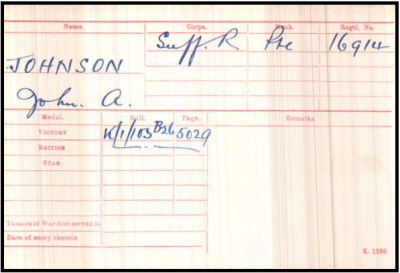 Name. Corps. Rank. Regtl. No.
JOHNSON Suff. R Pte 16914
John. A.
Medal. Roll. Page. Remarks
VICTORY K/1/103 B26 5029
BRITISH
STAR
Theatre of War first served in
Date of entry therein
K. 1380